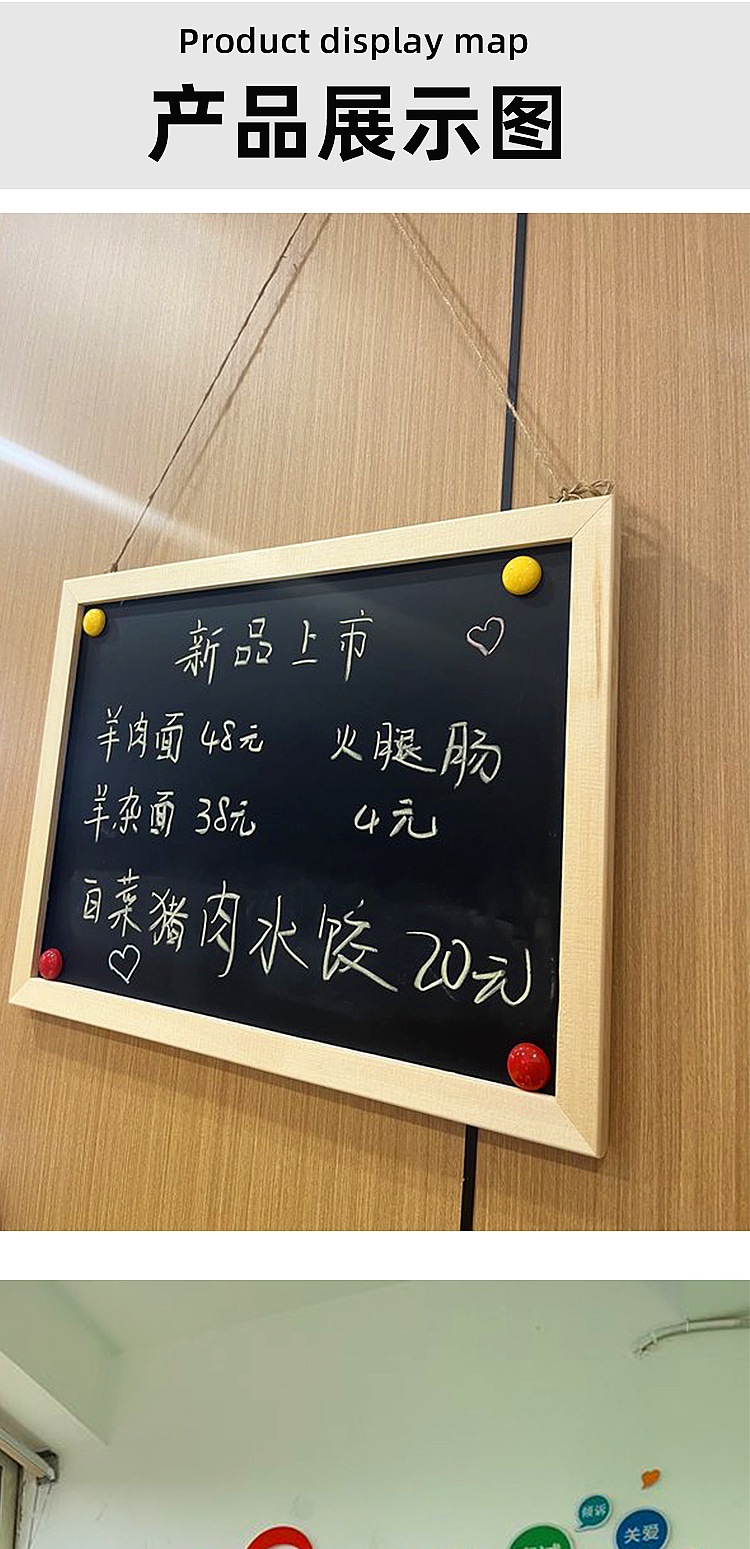 Product display map
产品展示图
新品上市
羊肉面 48元 火腿肠
羊杂面 38元 4元
白菜猪肉水饺 20元
倾诉
关爱